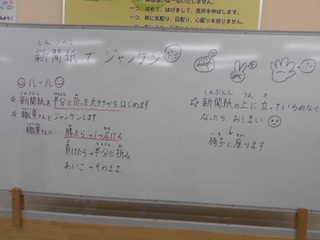 しんぶんし
新聞紙でジャンケン
ルール
しんぶんし はんぶん お おお
新聞紙を半分に折った大きさからはじめます
職員とジャンケンします
職員さんに 勝ったら→1つ広げる
負けたら→半分に折る
あいこ→そのまま
しんぶんし うえ た
新聞紙の上に立っていられなく
なったら おしまい
↓
椅子に座ります
一つ、はめて、はげまして、長所を伸ばします。
一つ、常に気配り、目配り、心配りを怠りません。